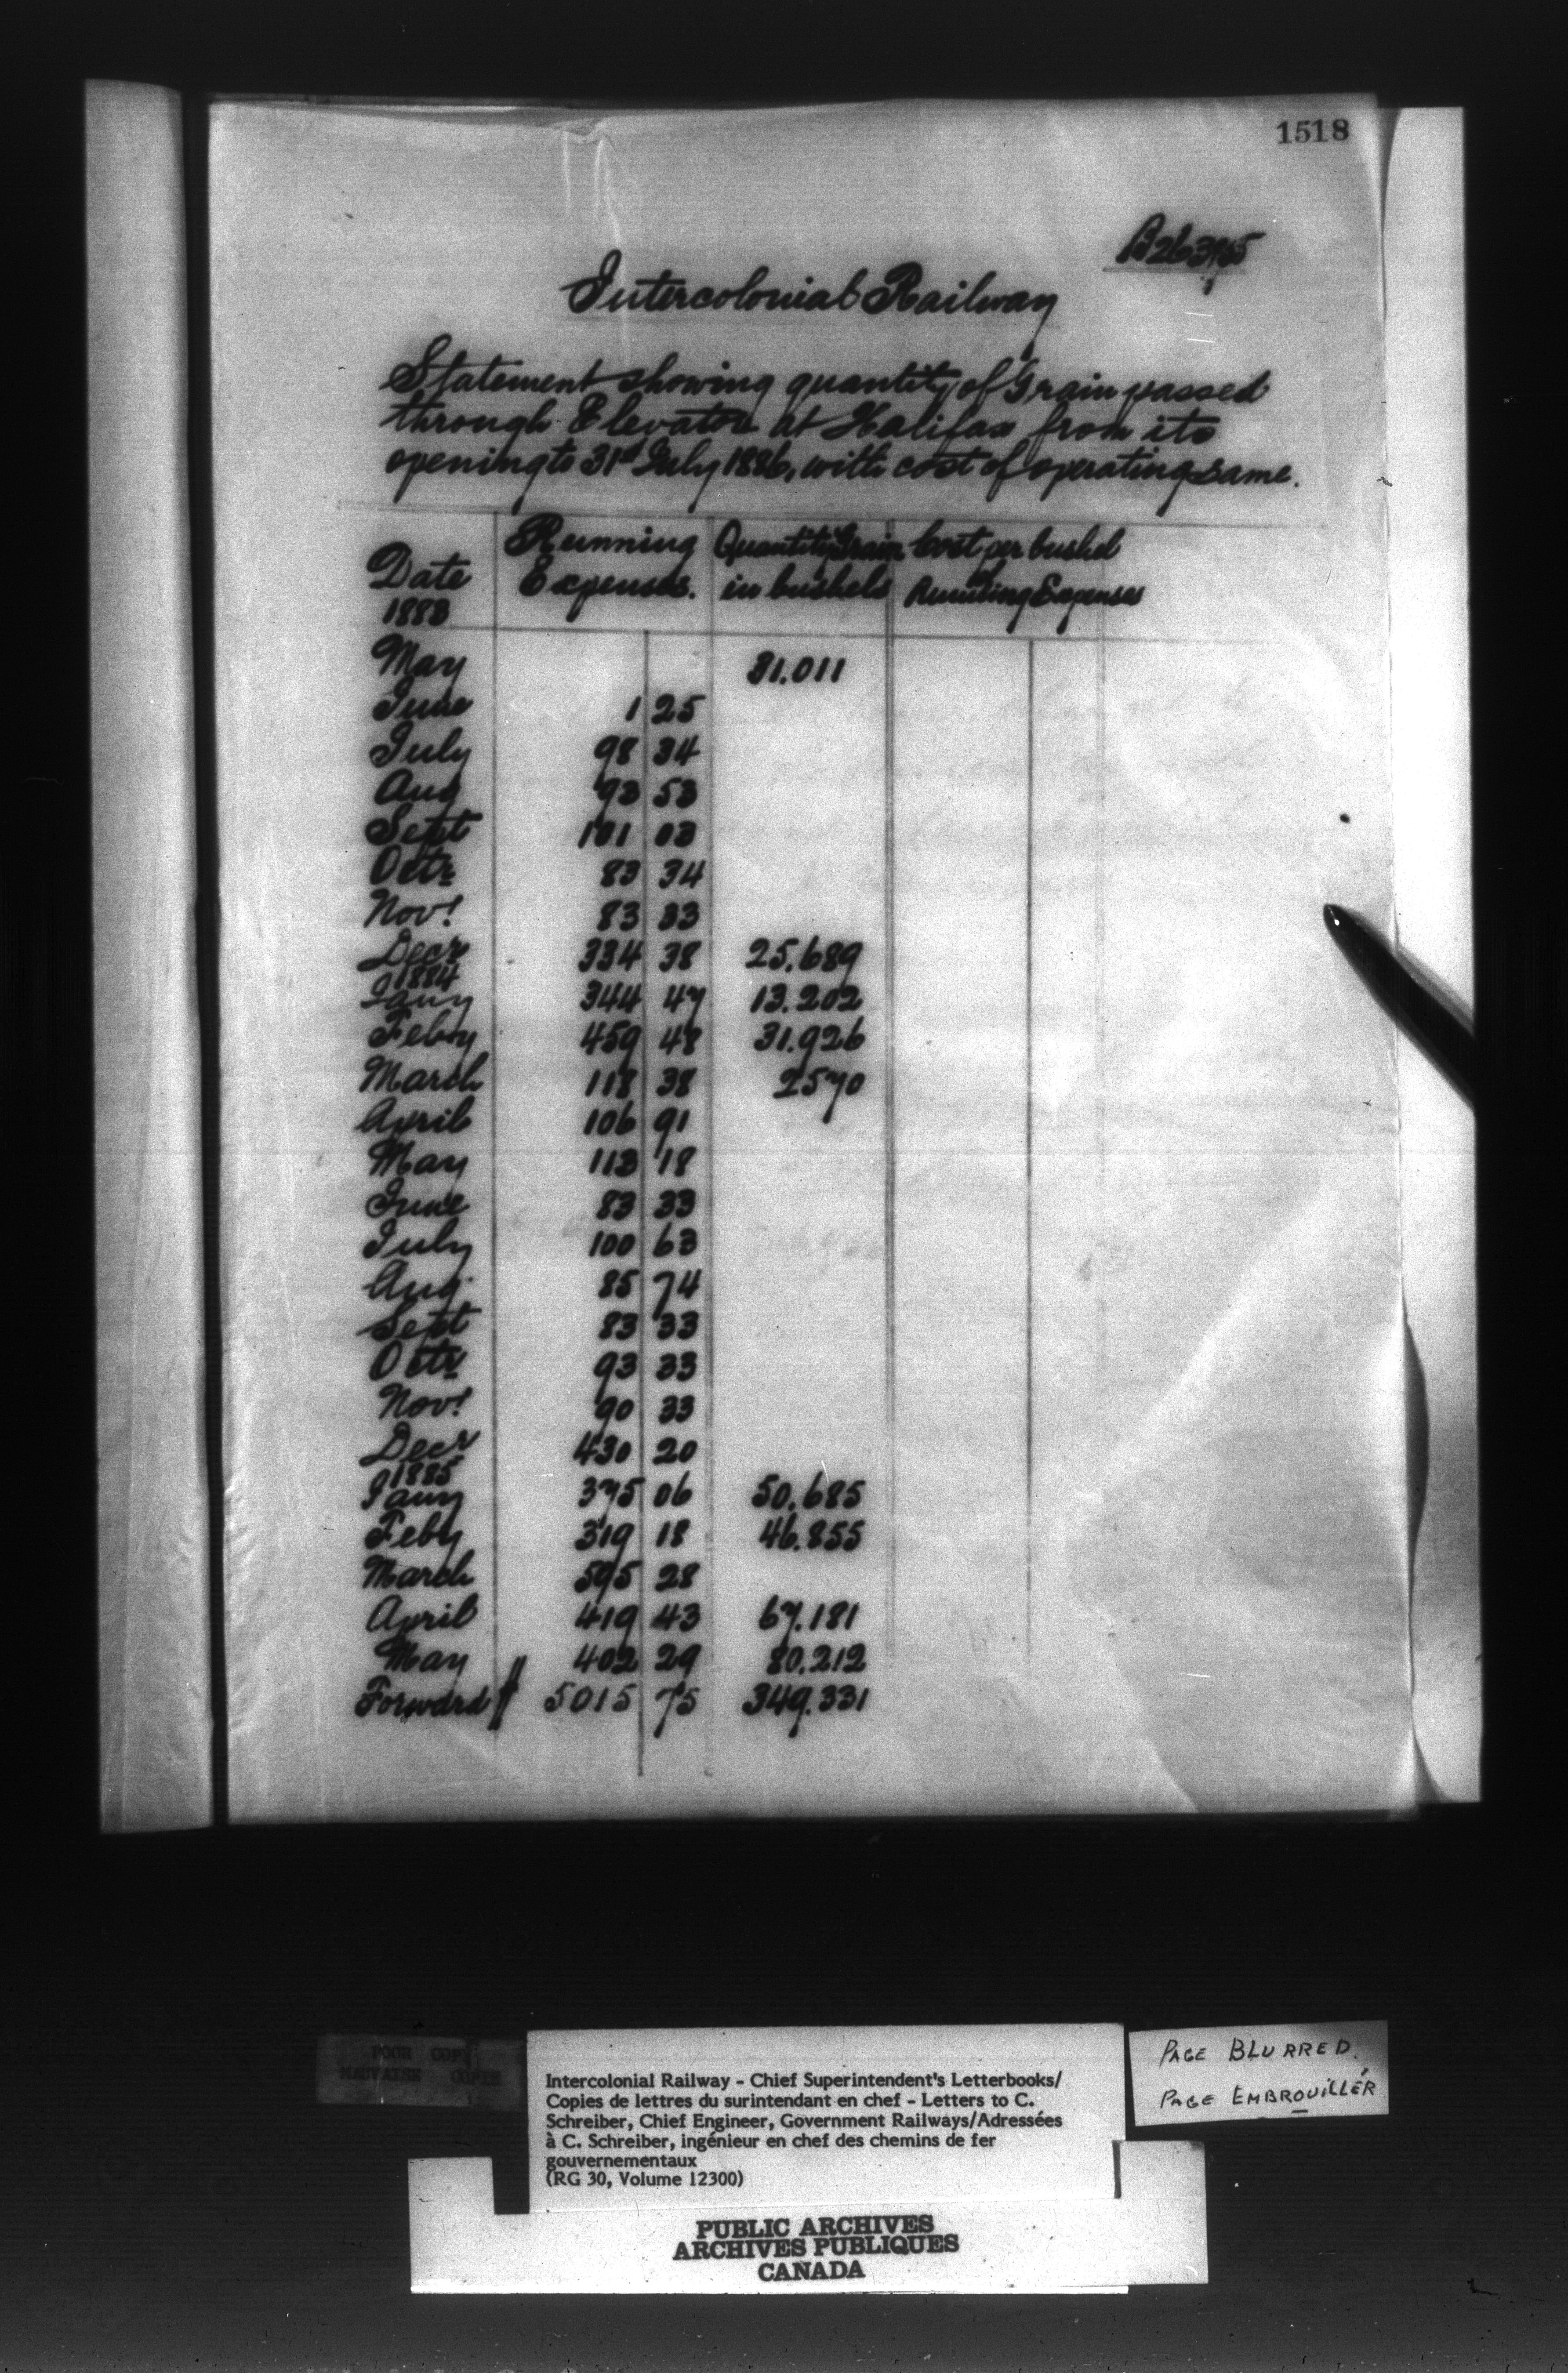 1518
Intercolonial Railway
Statement showing quantity of Grain passed
through Elevator at Halifax from its
opening to 31st July 1886, with cost of operating same.
Date Running Expenses. Quantity Grain in bushels Cost per bushel of Running Expenses
1883
May 31.011
June 1 25
July 98 34
Aug 93 53
Sept 101 03
Octr 83 34
Novr 83 33
Decr 334 38 25.689
1884
Jany 344 47 13.202
Feby 459 48 31.926
March 118 38 2570
April 106 91
May 113 18
June 83 33
July 100 63
Aug 85 74
Sept 83 33
Octr 93 33
Novr 90 33
Decr 430 20
1885
Jany 375 06 50.685
Feby 319 18 46.855
March 595 28
April 419 43 67.181
May 402 29 80.212
Forward $ 5015 75 349.331
POOR COPY
MAUVAISE COPIE
Intercolonial Railway - Chief Superintendent's Letterbooks/
Copies de lettres du surintendant en chef - Letters to C.
Schreiber, Chief Engineer, Government Railways/Adressées
à C. Schreiber, ingénieur en chef des chemins de fer
gouvernementaux
(RG 30, Volume 12300)
PAGE BLURRED.
PAGE EMBROUILLÉR
PUBLIC ARCHIVES
ARCHIVES PUBLIQUES
CANADA